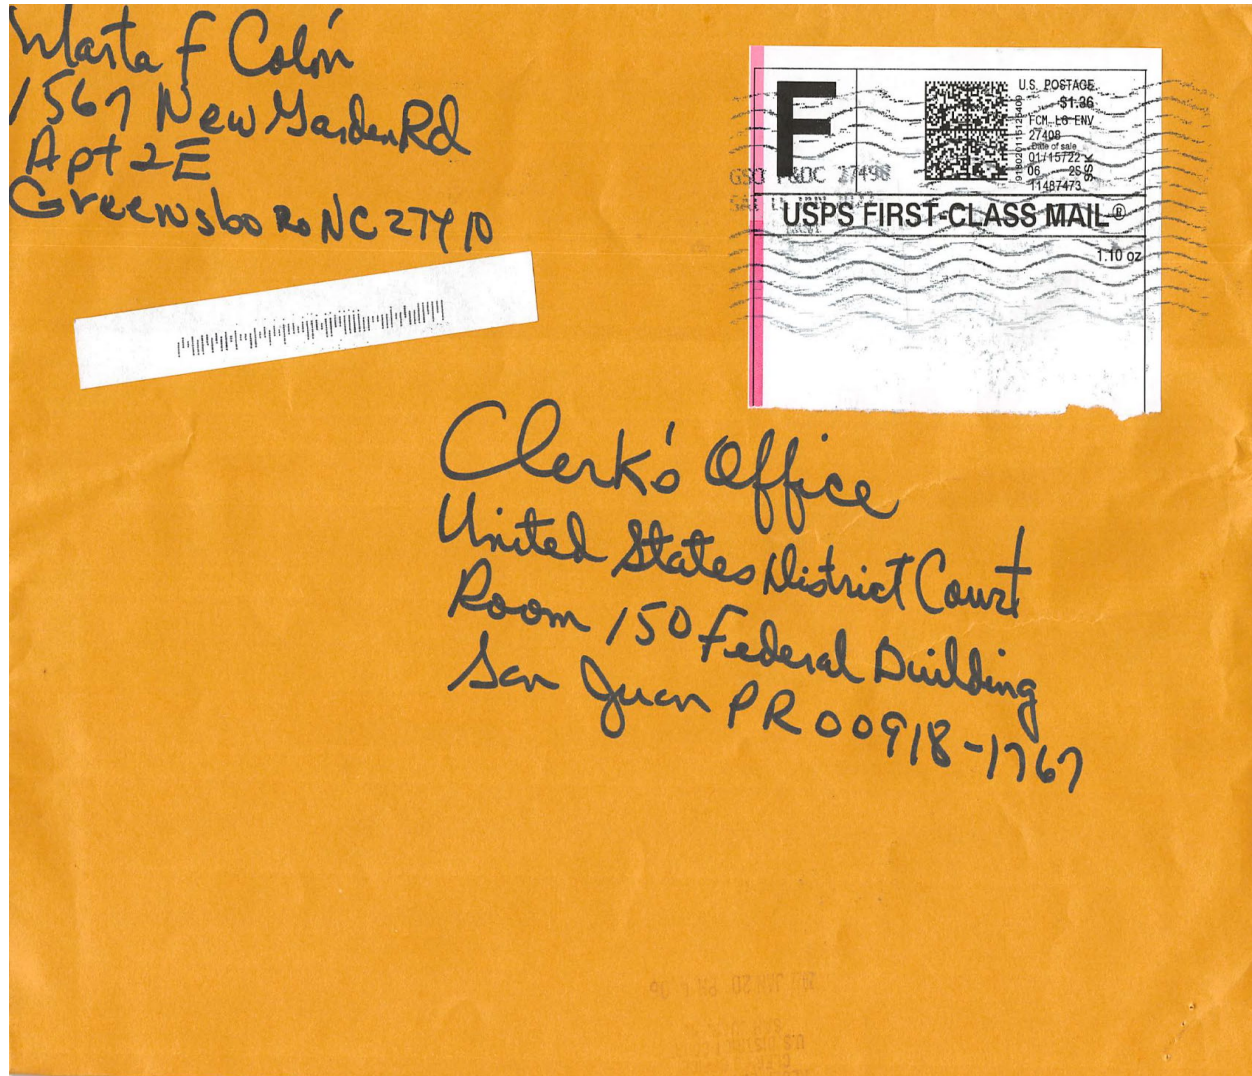 Marta F Colón
1567 New Garden Rd
Apt 2E
Greensboro NC 27410
F
U.S. POSTAGE
$1.36
FCM LG ENV
27408
Date of sale
01/15/22
06 2S
11487473
SSK
GSO P&DC 27498
USPS FIRST-CLASS MAIL®
1.10 oz
Clerk's Office
United States District Court
Room 150 Federal Building
San Juan PR 00918-1767